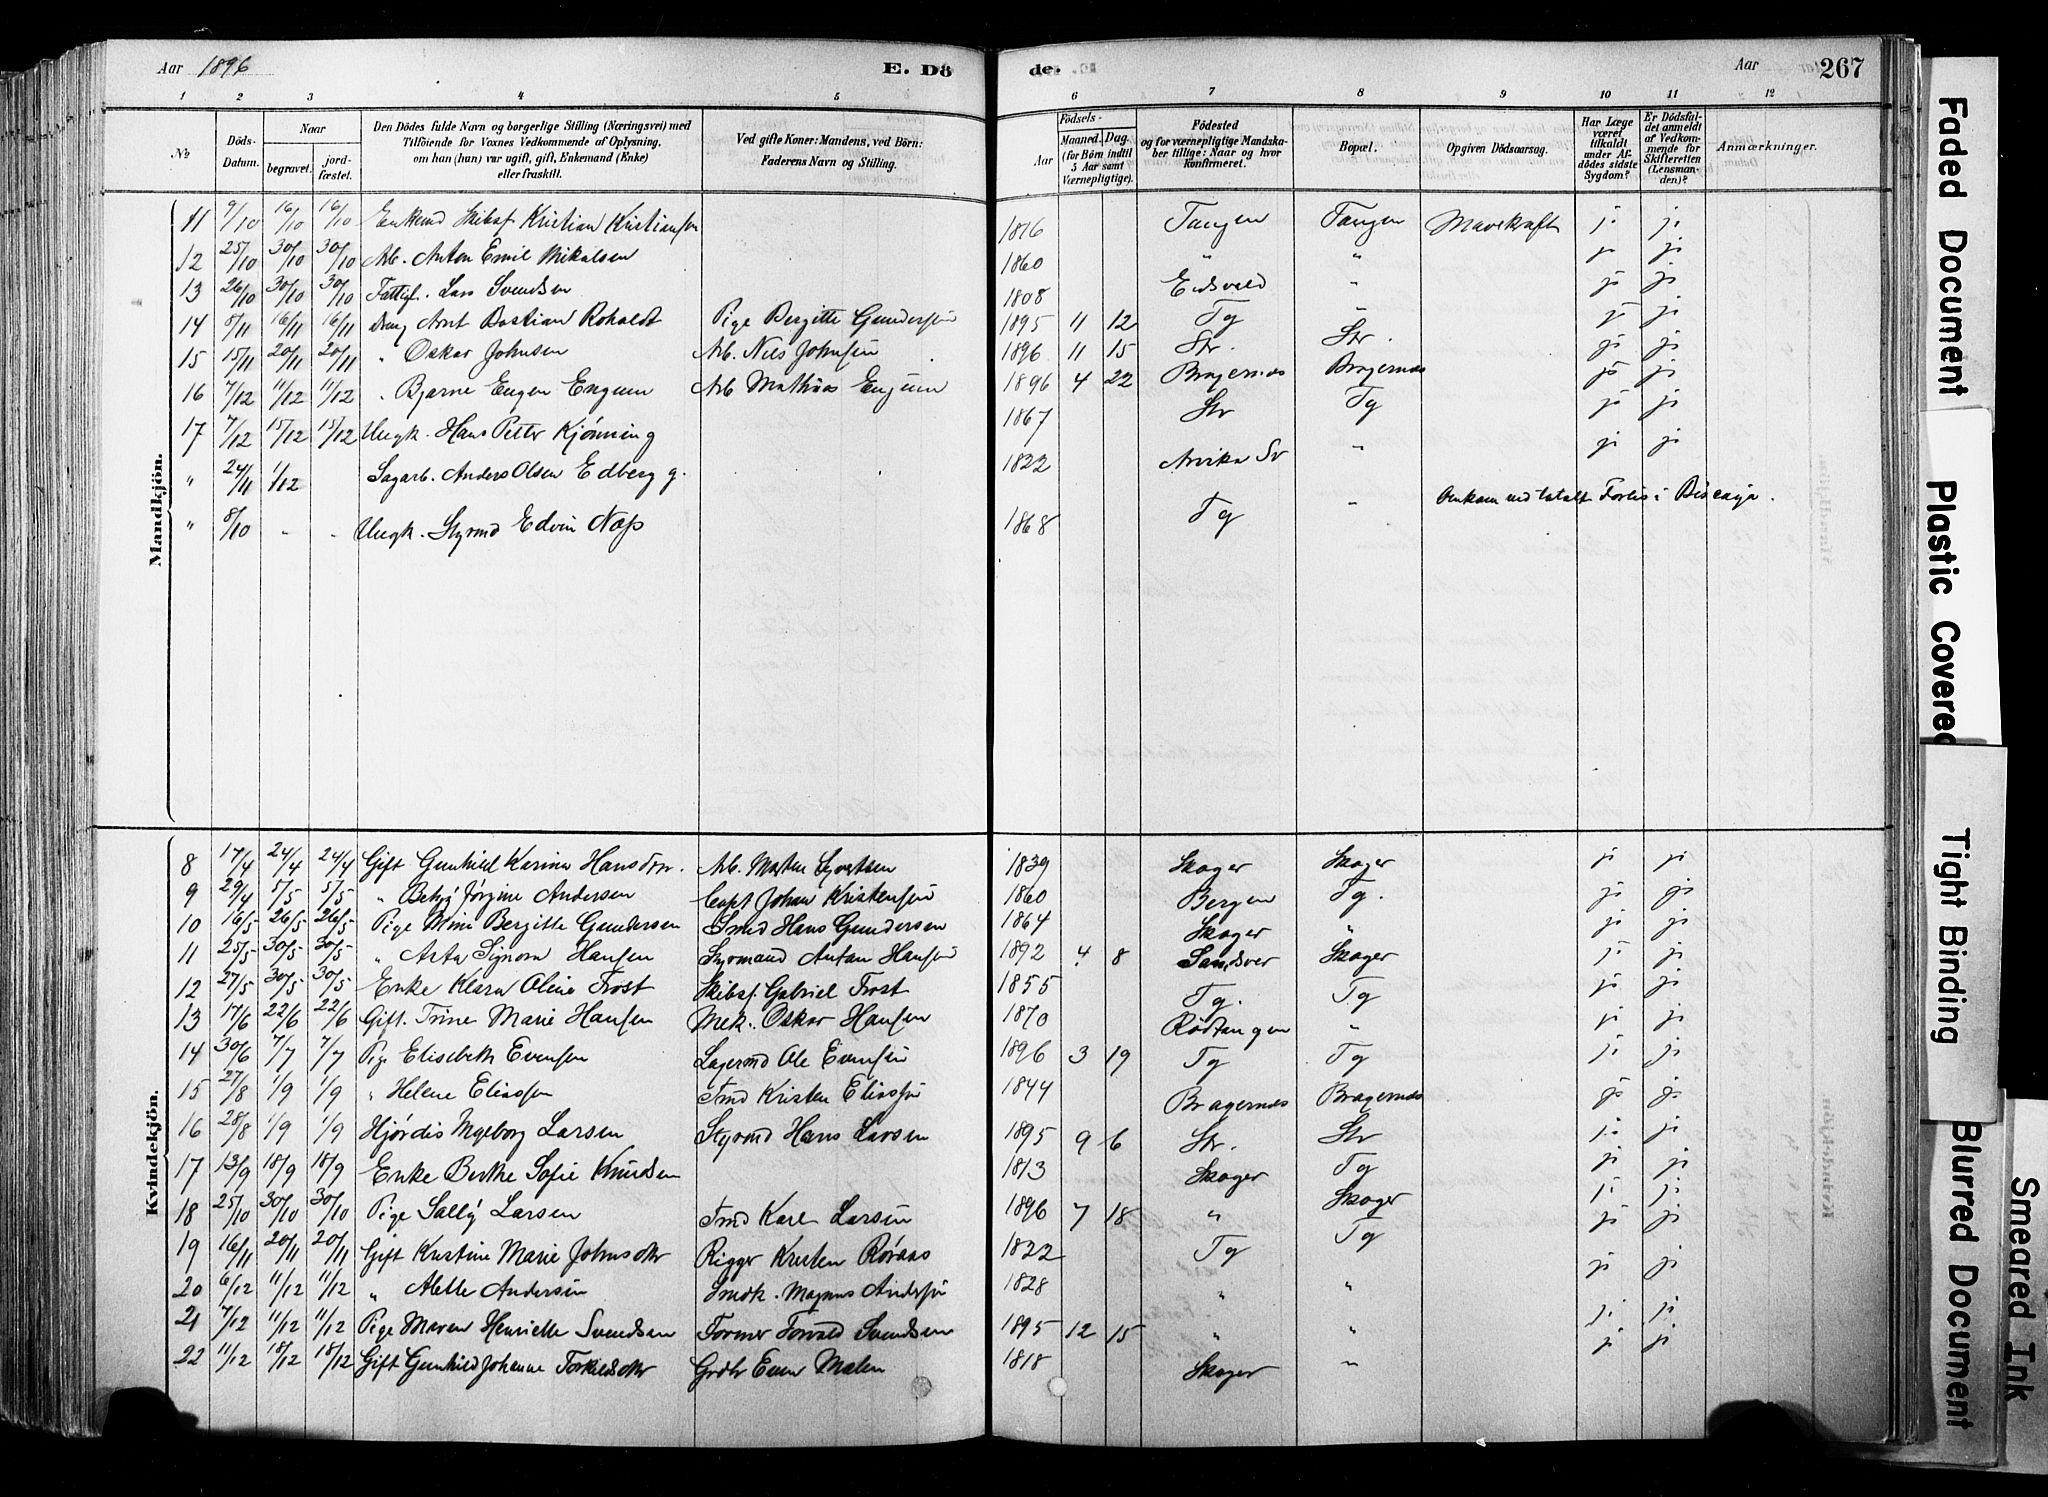 Aar 1896 E. Dö de. Aar 267
1 2 3 4 5 6 7 8 9 10 11 12
No Döds-Datum. Naar begravet. jord-fæstet. Den Dödes fulde Navn og borgerlige Stilling (Næringsvei) med Tilföiende for Voxnes Vedkommende af Oplysning, om han (hun) var ugift, gift, Enkemand (Enke) eller fraskilt. Ved gifte Koner: Mandens, ved Börn: Faderens Navn og Stilling. Födsels- Aar Maaned. Dag. (for Börn indtil 5 Aar samt Værnepligtige). Födested og for værnepligtige Mandskaber tillige: Naar og hvor Konfirmeret. Bopæl. Opgiven Dödsaarsag. Har Læge været tilkaldt under Afdödes sidste Sygdom? Er Dödsfaldet anmeldt af Vedkommende for Skifteretten (Lensmanden)? Anmærkninger.
Mandkjön.
11 9/10 16/10 16/10 Enkemd Skibsf Kristian Kristiansen 1816 Tangen Tangen Mavekræft ji ji
12 25/10 30/10 30/10 Arb. Anton Emil Mikalsen 1860 " " ji ji
13 26/10 30/10 30/10 Fattigl. Lars Svendsen 1808 Eidsvold " ji ji
14 8/11 16/11 16/11 Dreng Arnt Bastian Roholdt Pige Bergitte Gundersen 1895 11 12 Tg " ji ji
15 15/11 20/11 20/11 " Oskar Johnsen Arb. Nils Johnsen 1896 11 15 Str. Str. ji ji
16 7/12 11/12 11/12 " Bjarne Eugen Engum Arb Mathias Engum 1896 4 22 Bragernes Bragernes ji ji
17 7/12 15/12 15/12 Ungk. Hans Petter Kjønning 1867 Str Tg ji ji
" 24/11 1/12 Sagarb. Anders Olsen Edberg g. 1822 Arvika Sv " ji ji
" 8/10 - - Ungk. Styrmd Edvin Næss 1868 Tg " Omkom ved totalt Forlis i Biscaya.
Kvindekjön.
8 17/4 24/4 24/4 Gift Gunhild Karine Hansdtr. Arb. Morten Syvertsen 1839 Skoger Skoger ji ji
9 29/4 5/5 5/5 " Betzy Jørgine Andersen Capt Johan Kristensen 1860 Bergen Tg. ji ji
10 16/5 26/5 26/5 Pige Mina Bergitte Gundersen Smed Hans Gundersen 1864 Skoger " ji ji
11 25/5 30/5 30/5 " Asta Signora Hansen Styrmand Anton Hansen 1892 4 8 Sandsver Skoger ji ji
12 27/5 30/5 30/5 Enke Klara Oline Frost Skibsf. Gabriel Frost 1855 Tg. Tg ji ji
13 17/6 22/6 22/6 Gift. Trine Marie Hansen Mek. Oskar Hansen 1870 Rødtangen " ji ji
14 30/6 7/7 7/7 Pige Elisebeth Evensen Lagermd Ole Evensen 1896 3 19 Tg Tg ji ji
15 27/8 1/9 1/9 " Helene Eliassen Tmd Kristen Eliassen 1844 Bragernes Bragernes ji ji
16 28/8 1/9 1/9 Hjørdis Ingeborg Larsen Styrmd Hans Larsen 1895 9 6 Str. Str ji ji
17 13/9 18/9 18/9 Enke Berthe Sofie Knudsen 1813 Skoger Tg ji ji
18 25/10 30/10 30/10 Pige Sally Larsen Tmd Karl Larsen 1896 7 18 " Skoger ji ji
19 16/11 20/11 20/11 Gift Kristine Marie Johnsdtr Rigger Kristen Røraas 1822 Tg Tg ji ji
20 6/12 11/12 11/12 " Alette Andersen Smdk. Magnus Andersen 1828 " " ji ji
21 7/12 11/12 11/12 Pige Maren Henriette Svendsen Former Torvald Svendsen 1895 12 15 " " ji ji
22 11/12 18/12 18/12 Gift Gunhild Johanne Torkildsdtr Grdbr Even Malen 1818 Skoger " ji ji
Faded Document
Plastic Covered
Tight Binding
Blurred Document
Smeared Ink